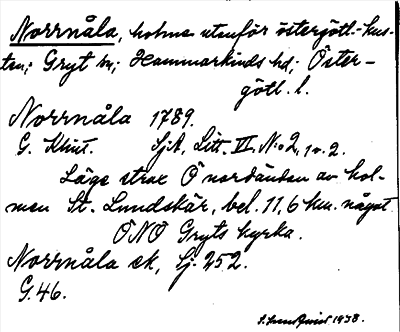 Norrnåla, holme utanför östergötl.-kus-
ten; Gryt sn; Hammarkinds hd; Öster-
götl. l.
Norrnåla 1789.
G. Klint. SjA, Litt. VI, No 2, 1 o. 2.
Läge strax Ö nordändan av hol-
men St. Lundskär, bel. 11,6 km. något
ÖNÖ Gryts kyrka.
Norrnåla ek, Sj. 252.
G. 46.
1938.